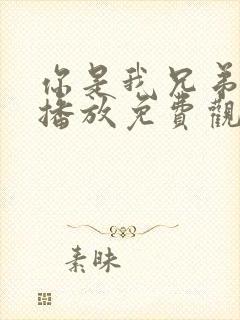 你是我兄弟
播放免費觀
素昧